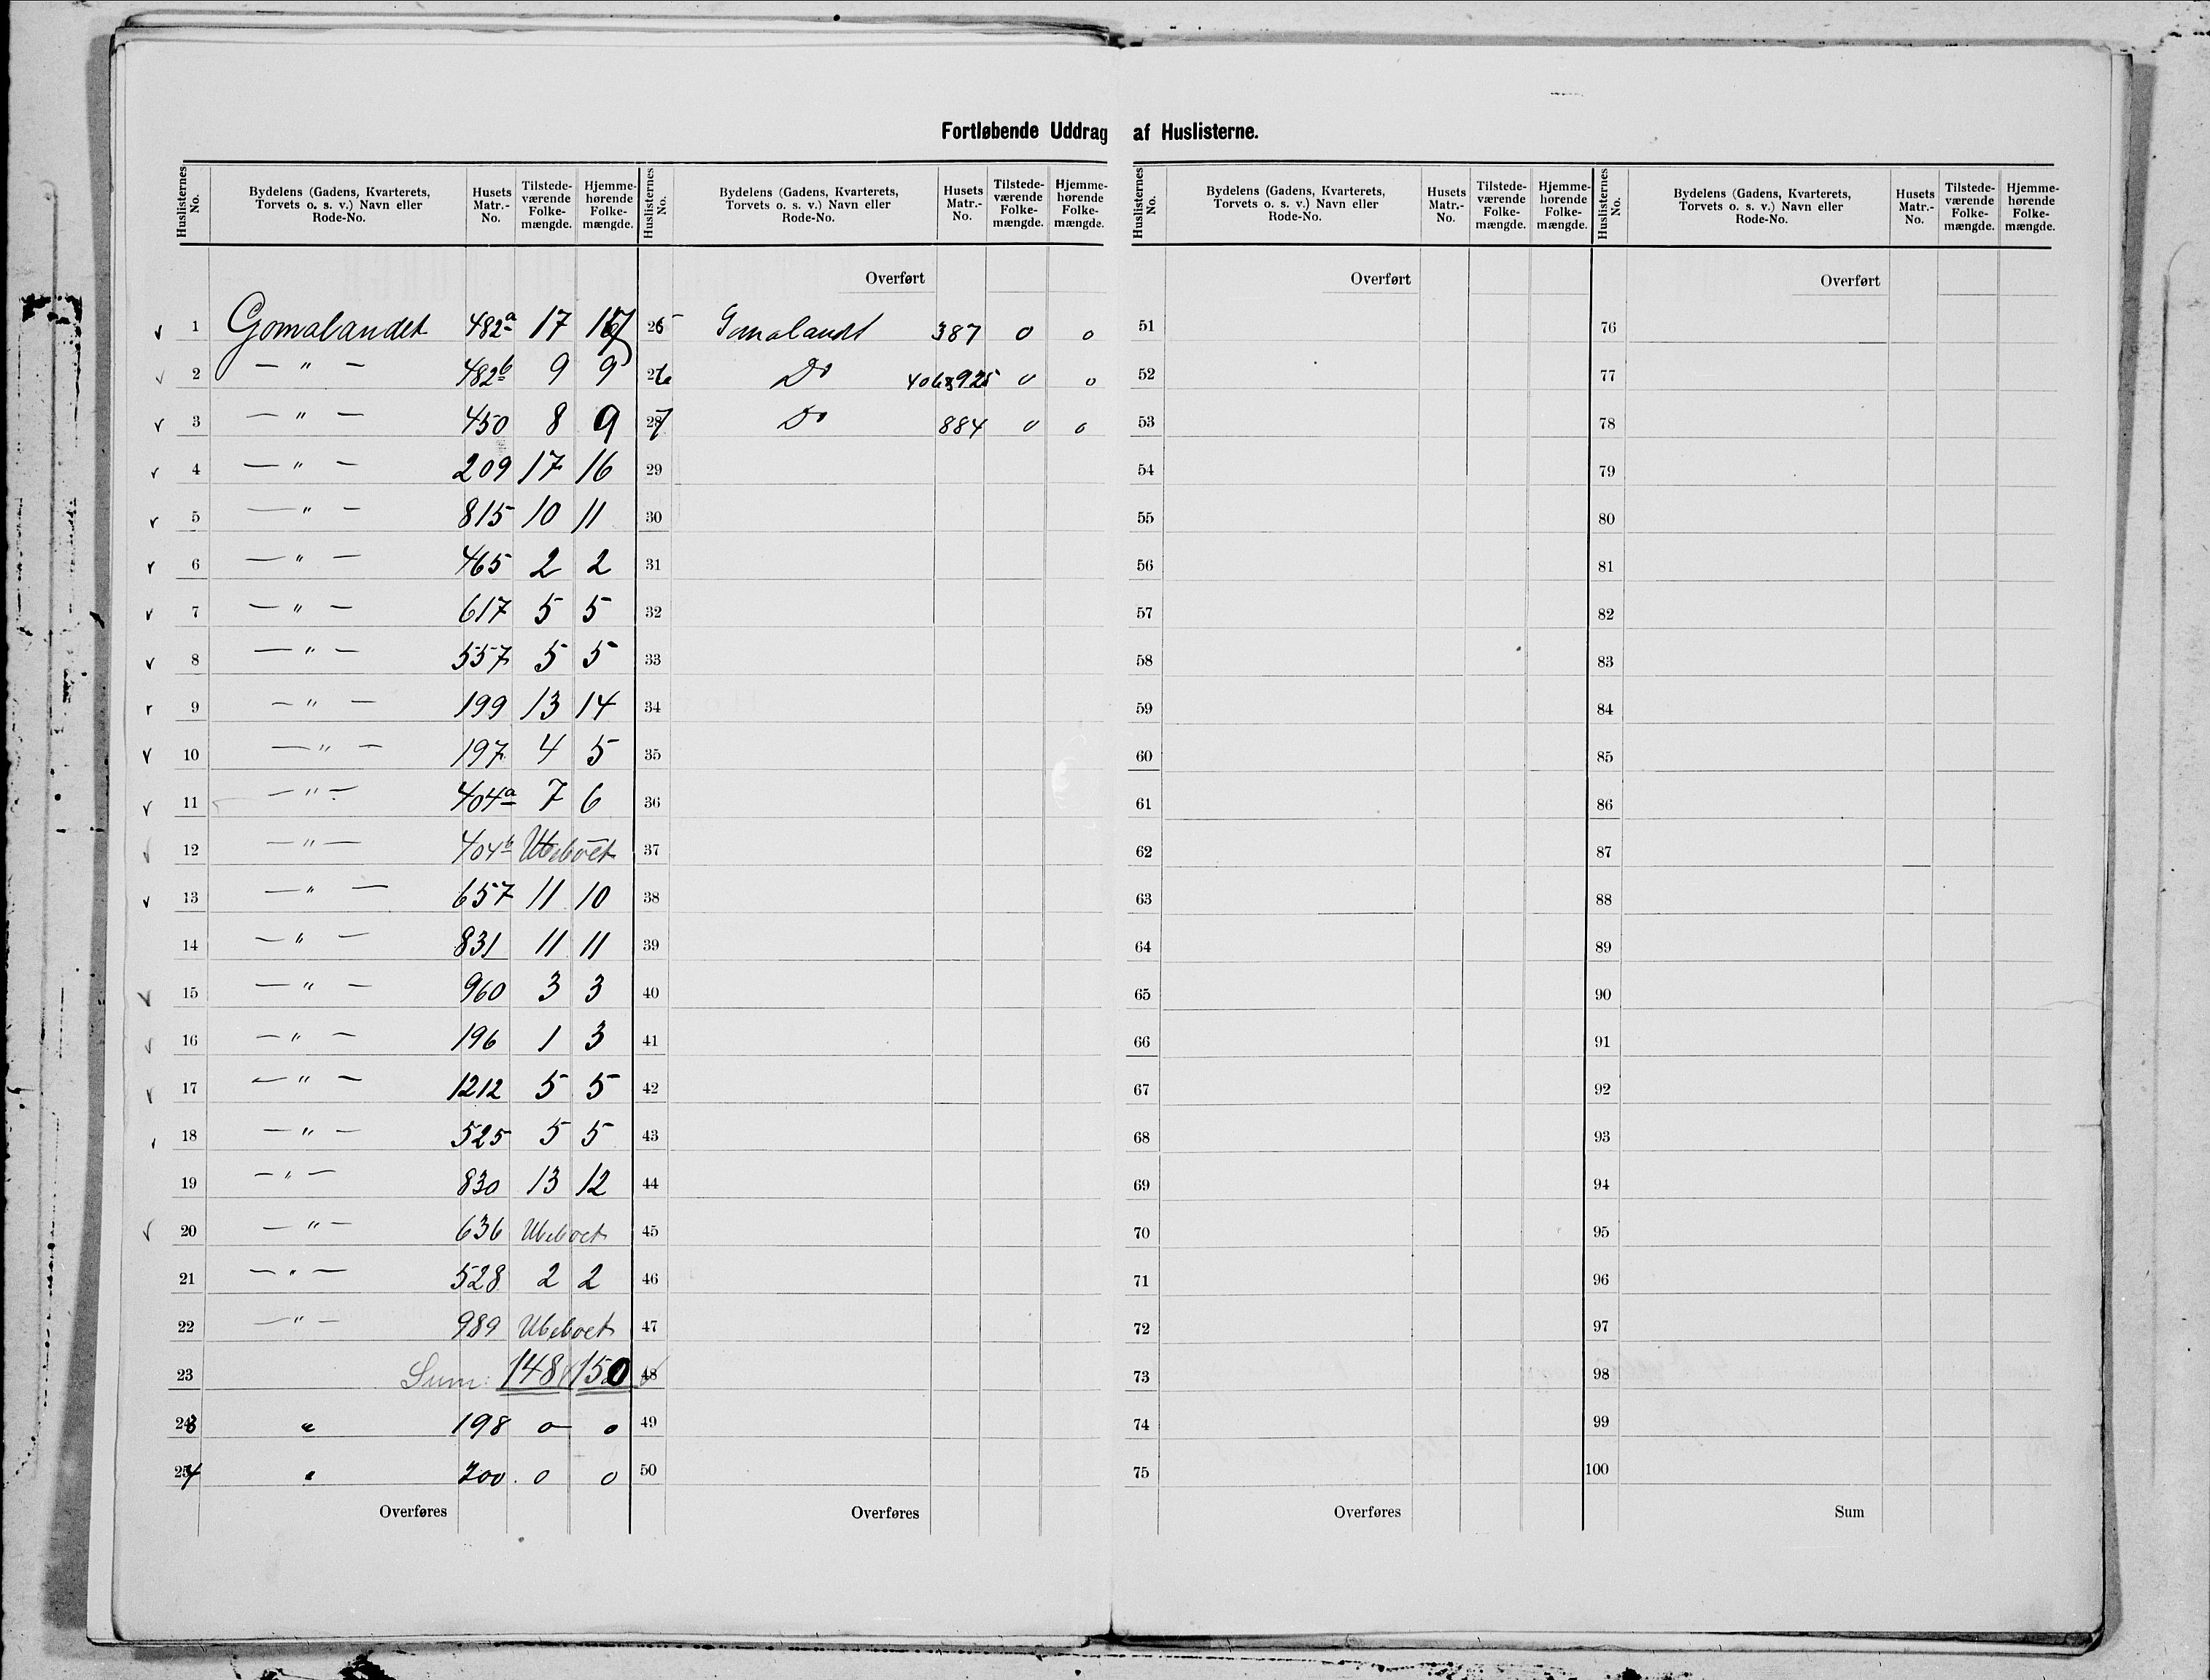 Fortløbende Uddrag af Huslisterne.
Huslisternes No. Bydelens (Gadens, Kvarterets, Torvets o. s. v.) Navn eller Rode-No. Husets Matr.-No. Tilstedeværende Folkemængde. Hjemmehørende Folkemængde.
1 Gomalandet 482a 17
2 — " — 482b 9 9
3 — " — 450 8 9
4 — " — 209 17 16
5 — " — 815 10 11
6 — " — 465 2 2
7 — " — 617 5 5
8 — " — 557 5 5
9 — " — 199 13 14
10 — " — 197 4 5
11 — " — 404a 7 6
12 — " — 404b Ubeboet
13 — " — 657 11 10
14 — " — 831 11 11
15 — " — 960 3 3
16 — " — 196 1 3
17 — " — 1212 5 5
18 — " — 525 5 5
19 — " — 830 13 12
20 — " — 636 Ubeboet
21 — " — 528 2 2
22 — " — 989 Ubeboet
23 Sum: 148 150
23 " 198 0 0
24 " 200 0 0
Overføres
Huslisternes No. Bydelens (Gadens, Kvarterets, Torvets o. s. v.) Navn eller Rode-No. Husets Matr.-No. Tilstedeværende Folkemængde. Hjemmehørende Folkemængde.
Overført
25 Gomalandt 387 0 0
26 Do 925 0 0
27 Do 884 0 0
29
30
31
32
33
34
35
36
37
38
39
40
41
42
43
44
45
46
47
48
49
50
Overføres
Huslisternes No. Bydelens (Gadens, Kvarterets, Torvets o. s. v.) Navn eller Rode-No. Husets Matr.-No. Tilstedeværende Folkemængde. Hjemmehørende Folkemængde.
Overført
51
52
53
54
55
56
57
58
59
60
61
62
63
64
65
66
67
68
69
70
71
72
73
74
75
Overføres
Huslisternes No. Bydelens (Gadens, Kvarterets, Torvets o. s. v.) Navn eller Rode-No. Husets Matr.-No. Tilstedeværende Folkemængde. Hjemmehørende Folkemængde.
Overført
76
77
78
79
80
81
82
83
84
85
86
87
88
89
90
91
92
93
94
95
96
97
98
99
100
Sum